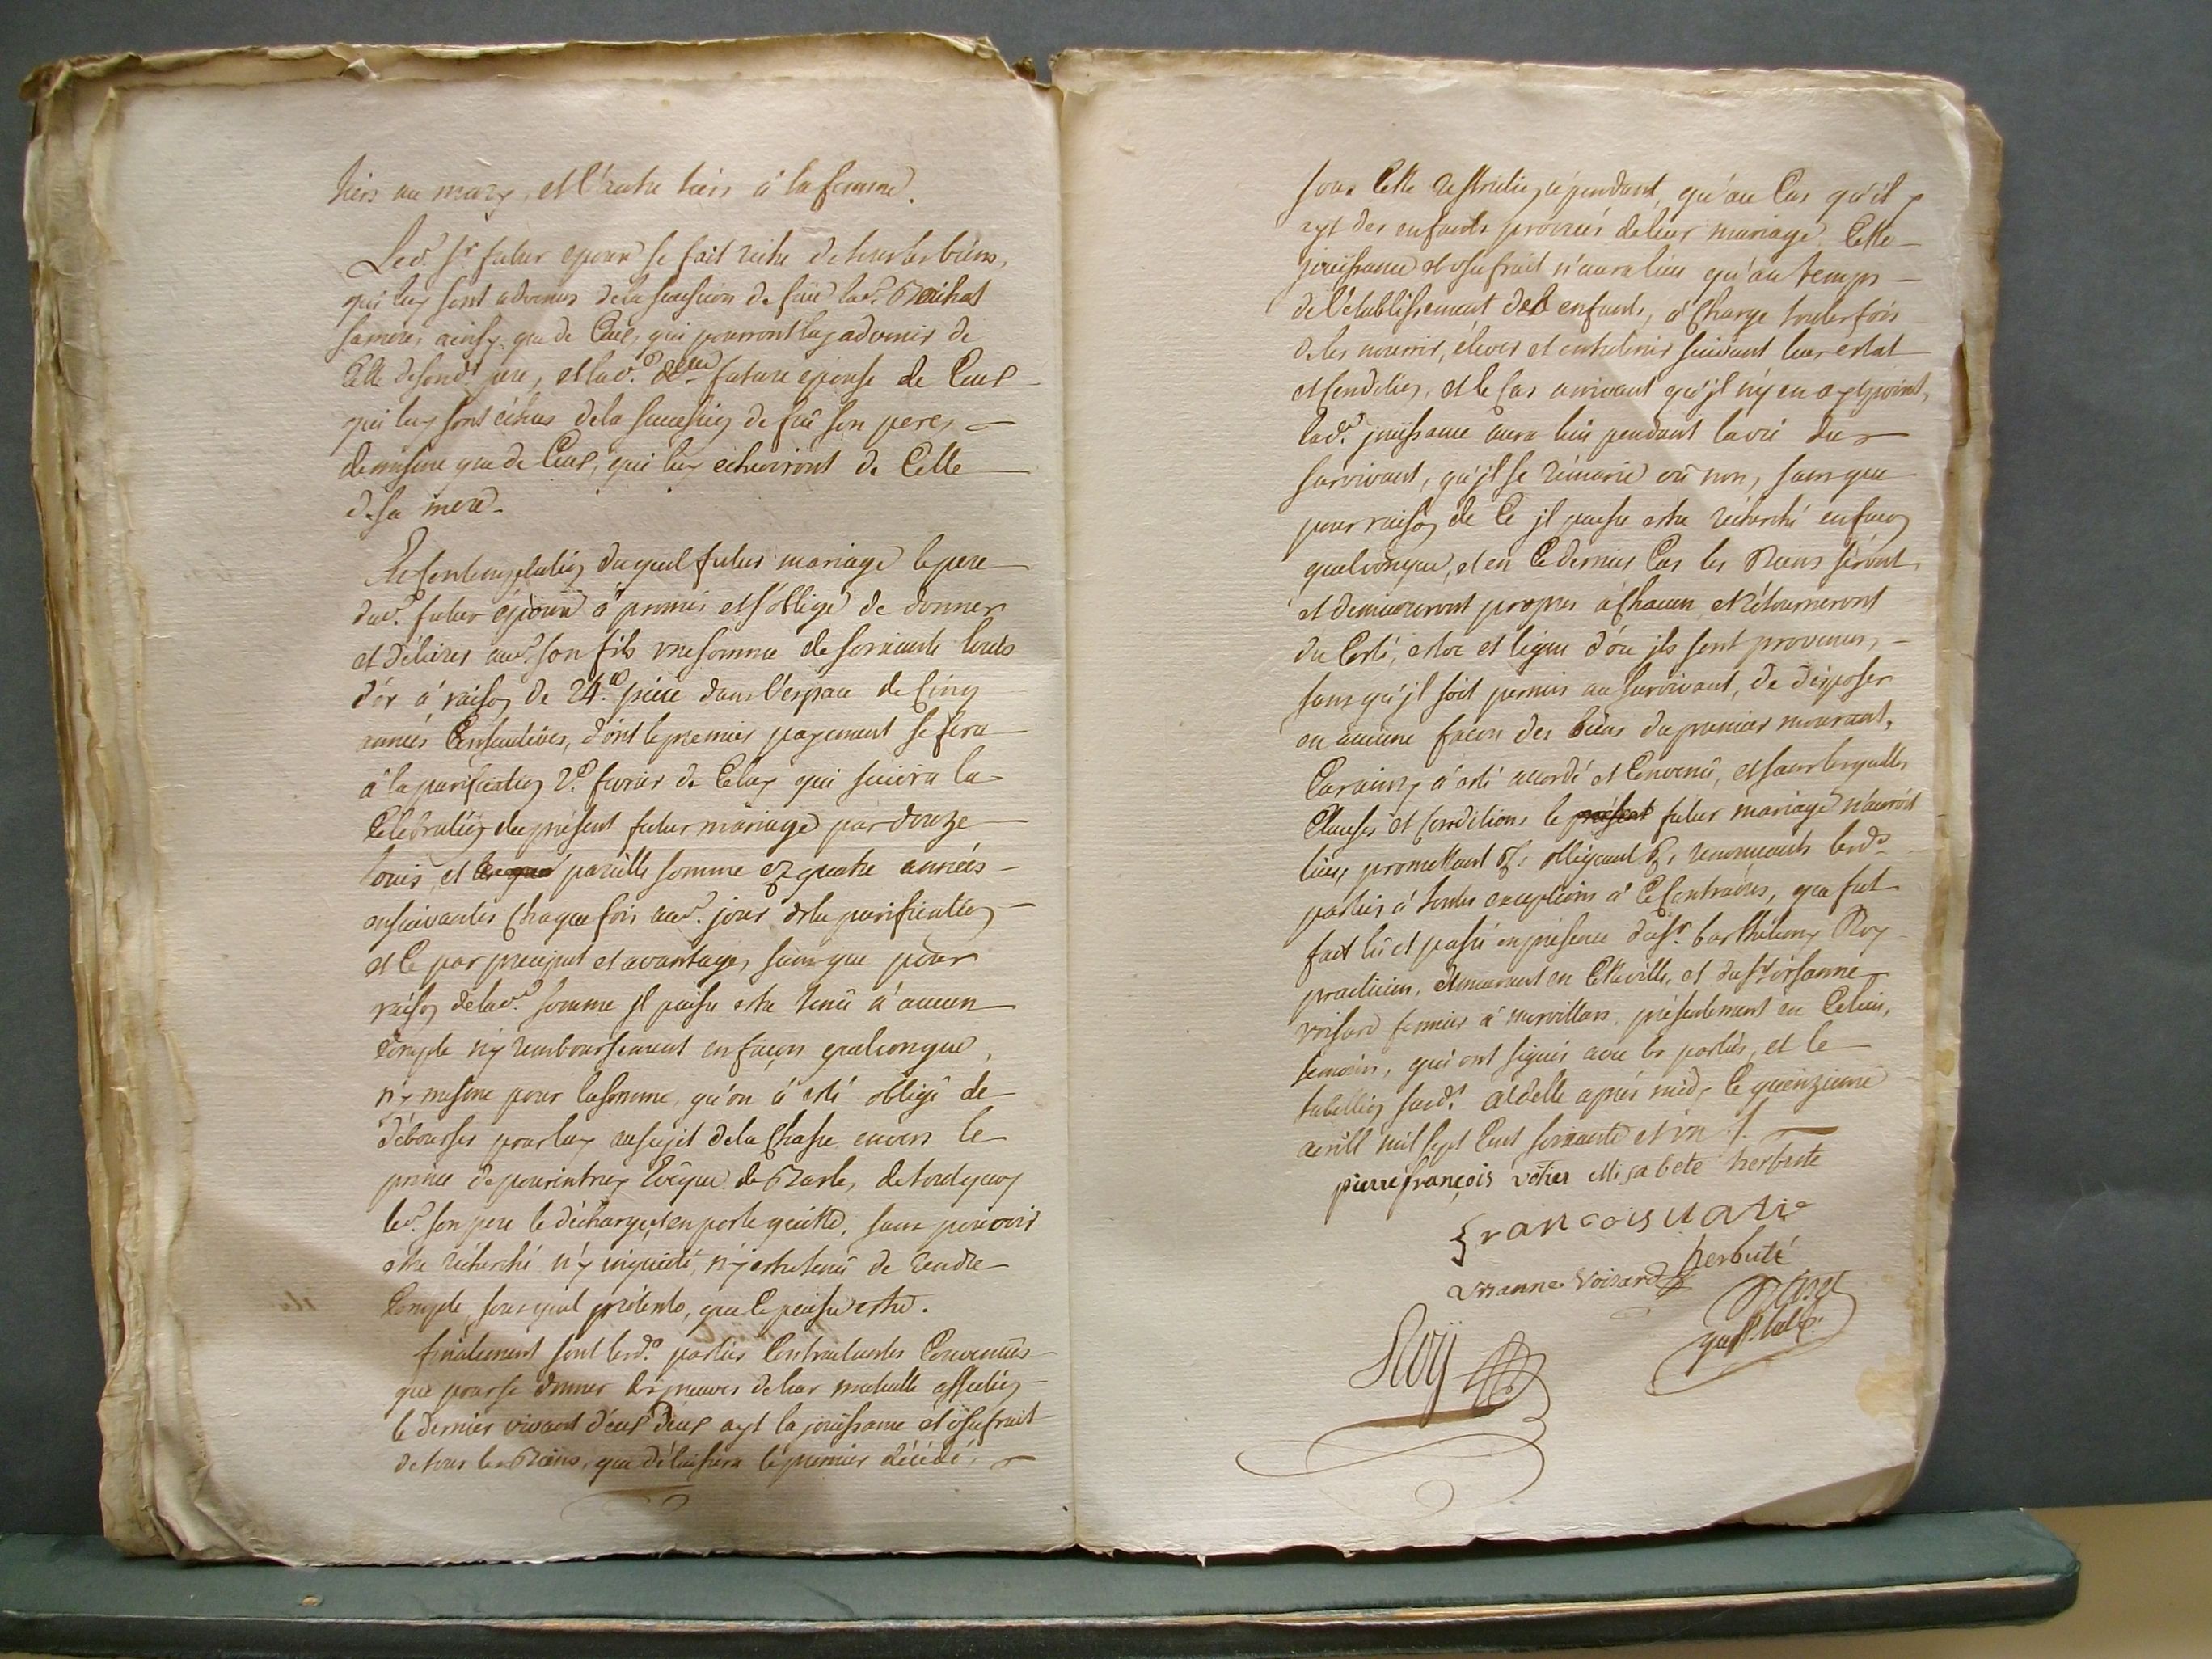 tiers au mary, et l'autre tiers à la femme.
Led. Sr. futur epoux se fait riche de tous les biens,
qui luy sont advenus de la sucession de fuë lad.
sa mere, ainsy que de Ceux, qui pourront luy advenir de
Celle de sond. pere, et lad. delle. future epouse de Ceux
qui luy sont échus de la succession de fû son pere,
de mesme que de Ceux, qui luy echeoiront de Celle
de sa mere.
En Contemplation duquel futur mariage le pere
dud. futur epoux à promis et s'oblige de donner
et délivrer aud. son fils une somme de soixante louis
d'ór à raison de 24.ll piece dans l'espace de Cinq
années Consecutives, dont le premier payement se fera
à la purification 2.e fevrier de Celuy qui suivra la
Celebration du présent futur mariage par douze
louis, et pareille somme ez quatre années
ensuivantes Chaque fois aud. jour de la purification
et Ce par preciput et avantage, sans que pour
raison de lad. somme il puisse estre tenû à aucun
Compte n'y remboursement en façon qualconque,
n'y mesme pour la somme, qu'on à esté obligé de
débourser pour luy au sujet de la Chasse envers le
prince de pourintruy Evêque de Basle, de tout quoy
led. son pere le décharge, et en porte quitte, sans pouvoir
estre récherché n'y inquiété, n'y estre tenû de rendre
Compte, sous quel prétexte, que Ce puisse estre.
finalement sont lesd. parties Contractantes Convenuës
que pour se donner des preuves de leur mutuelle affection
le dernier vivant d'eux deux ayt la joüissance et usufruit
de tous les Biens, que délaissera le premier décédé,
sous Cette restriction, cépendant, qu'au Cas qu'il y
ayt des enfants procréés de leur mariage Cette
joüissance et usufruit n'aura lieu qu'au temps
de l'etablissement des enfants, à Charge toutes fois
de les nourrir, élever et entretenir suivant leur estat
et Condition, et le Cas arrivant qu'jl n'y en ayt point,
lad. joüissance aura lieu pendant la vie du
survivant, qu'jl se rémarie où non, sans que
pour raison de Ce jl puisse estre récherché en façon
quelconque, et en Ce dernier Cas les Biens séront
et demeureront propres à Chacun et rétourneront
du Costé, estoc et ligne d'óu jls sont provenus,
sans qu'jl soit permis au survivant, de disposer
en aucune facon des biens du premier mourant,
Car ainsy à esté accordé et Convenû, et sans lesquelles
Clauses et Conditions le présent futur mariage n'auroit
lieu, promettant &c. obligeant &c. renonceants lesd.
parties à toutes exceptions à Ce Contraires, que fut
fait lû et passé en présence du Sr. barthelemy Roy
praticien, demeurant en Cette ville, et du Sr. ursanne
voisard fermier à morvillars, présentement en Ce lieu,
temoins, qui ont signés avec les parties, et le
tabellion susd. à delle aprés midy le quinzieme
avrill mil sept Cent soixante et un ./.
pierre françois Elisabete herbute
francois
herbuté
Vrsanne Voisard
Roÿ